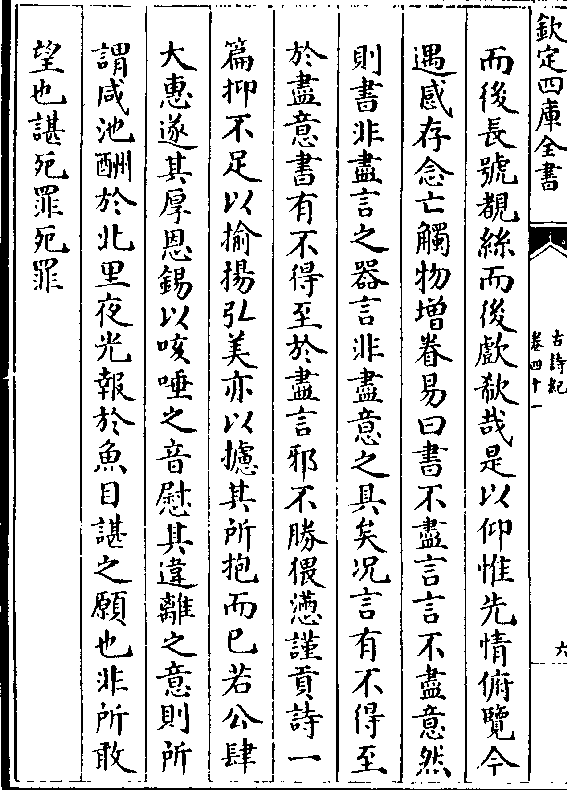 欽定四庫全書
古詩紀
卷四十一
六
而後長號覩絲而後歔欷哉是以仰惟先情俯覽今
遇感存念亡觸物增眷易曰書不盡言言不盡意然
則書非盡言之器言非盡意之具矣况言有不得至
於盡意書有不得至於盡言邪不勝猥懣謹貢詩一
篇抑不足以揄揚弘美亦以攄其所抱而已若公肆
大惠遂其厚恩錫以咳唾之音慰其違離之意則所
謂咸池酬於北里夜光報於魚目諶之願也非所敢
望也諶死罪死罪